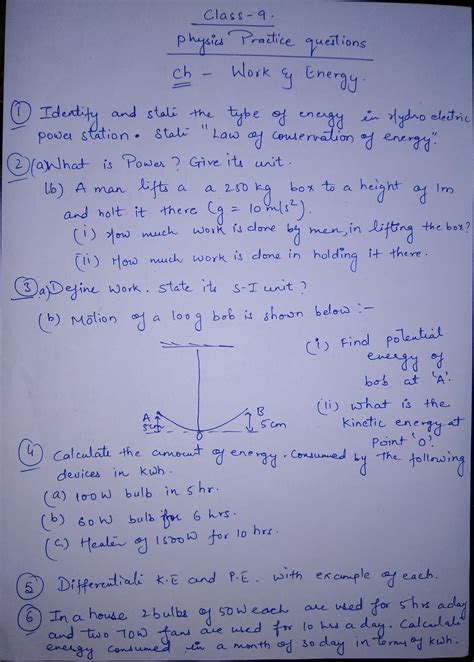 Class-9.
Physics Practice questions
Ch - Work & Energy.
① Identify and state the type of energy in Hydro electric
power station. State "Law of conservation of energy".
② (a) What is Power? Give its unit.
(b) A man lifts a a 250 kg box to a height of 1m
and holt it there (g = 10 m/s²).
(i) How much work is done by men, in lifting the box?
(ii) How much work is done in holding it there.
③ a) Define Work. State its S-I unit?
(b) Motion of a 100g bob is shown below :-
(i) Find potential
energy of
bob at 'A'.
(ii) What is the
kinetic energy at
Point 'O'.
A
5cm
O
B
5cm
④ Calculate the amount of energy. Consumed by the following
devices in kwh.
(a) 100W bulb in 5 hr.
(b) 60W bulb for 6 hrs.
(c) Heater of 1500W for 10 hrs.
⑤ Differentiate K.E and P.E. with example of each.
⑥ In a house 2 bulbs of 50W each are used for 5 hrs a day
and two 70W fans are used for 10 hrs a day. Calculate
energy consumed in a month of 30 day in terms of kwh.